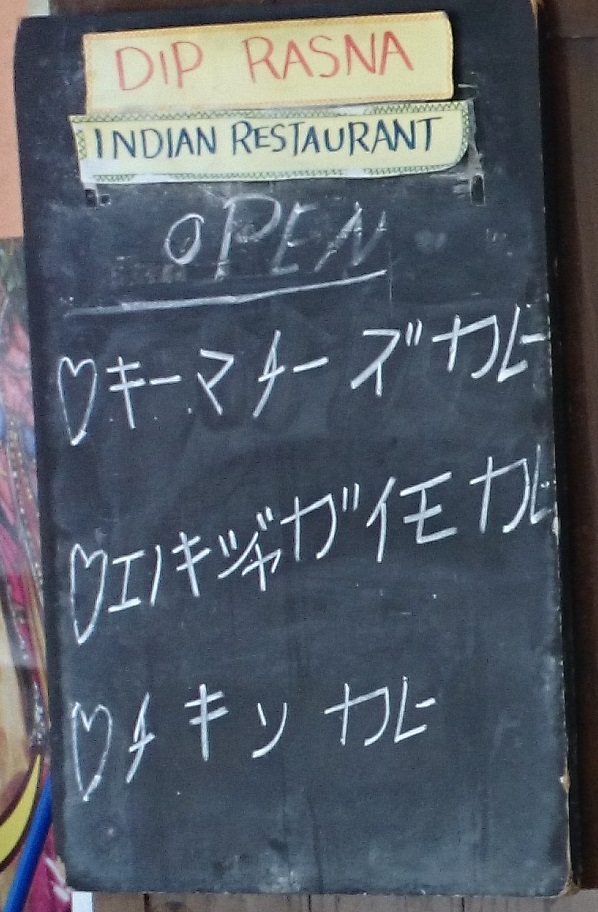 DIP RASNA
INDIAN RESTAURANT
OPEN
♡キーマチーズカレー
♡エノキジャガイモカレー
♡チキンカレー